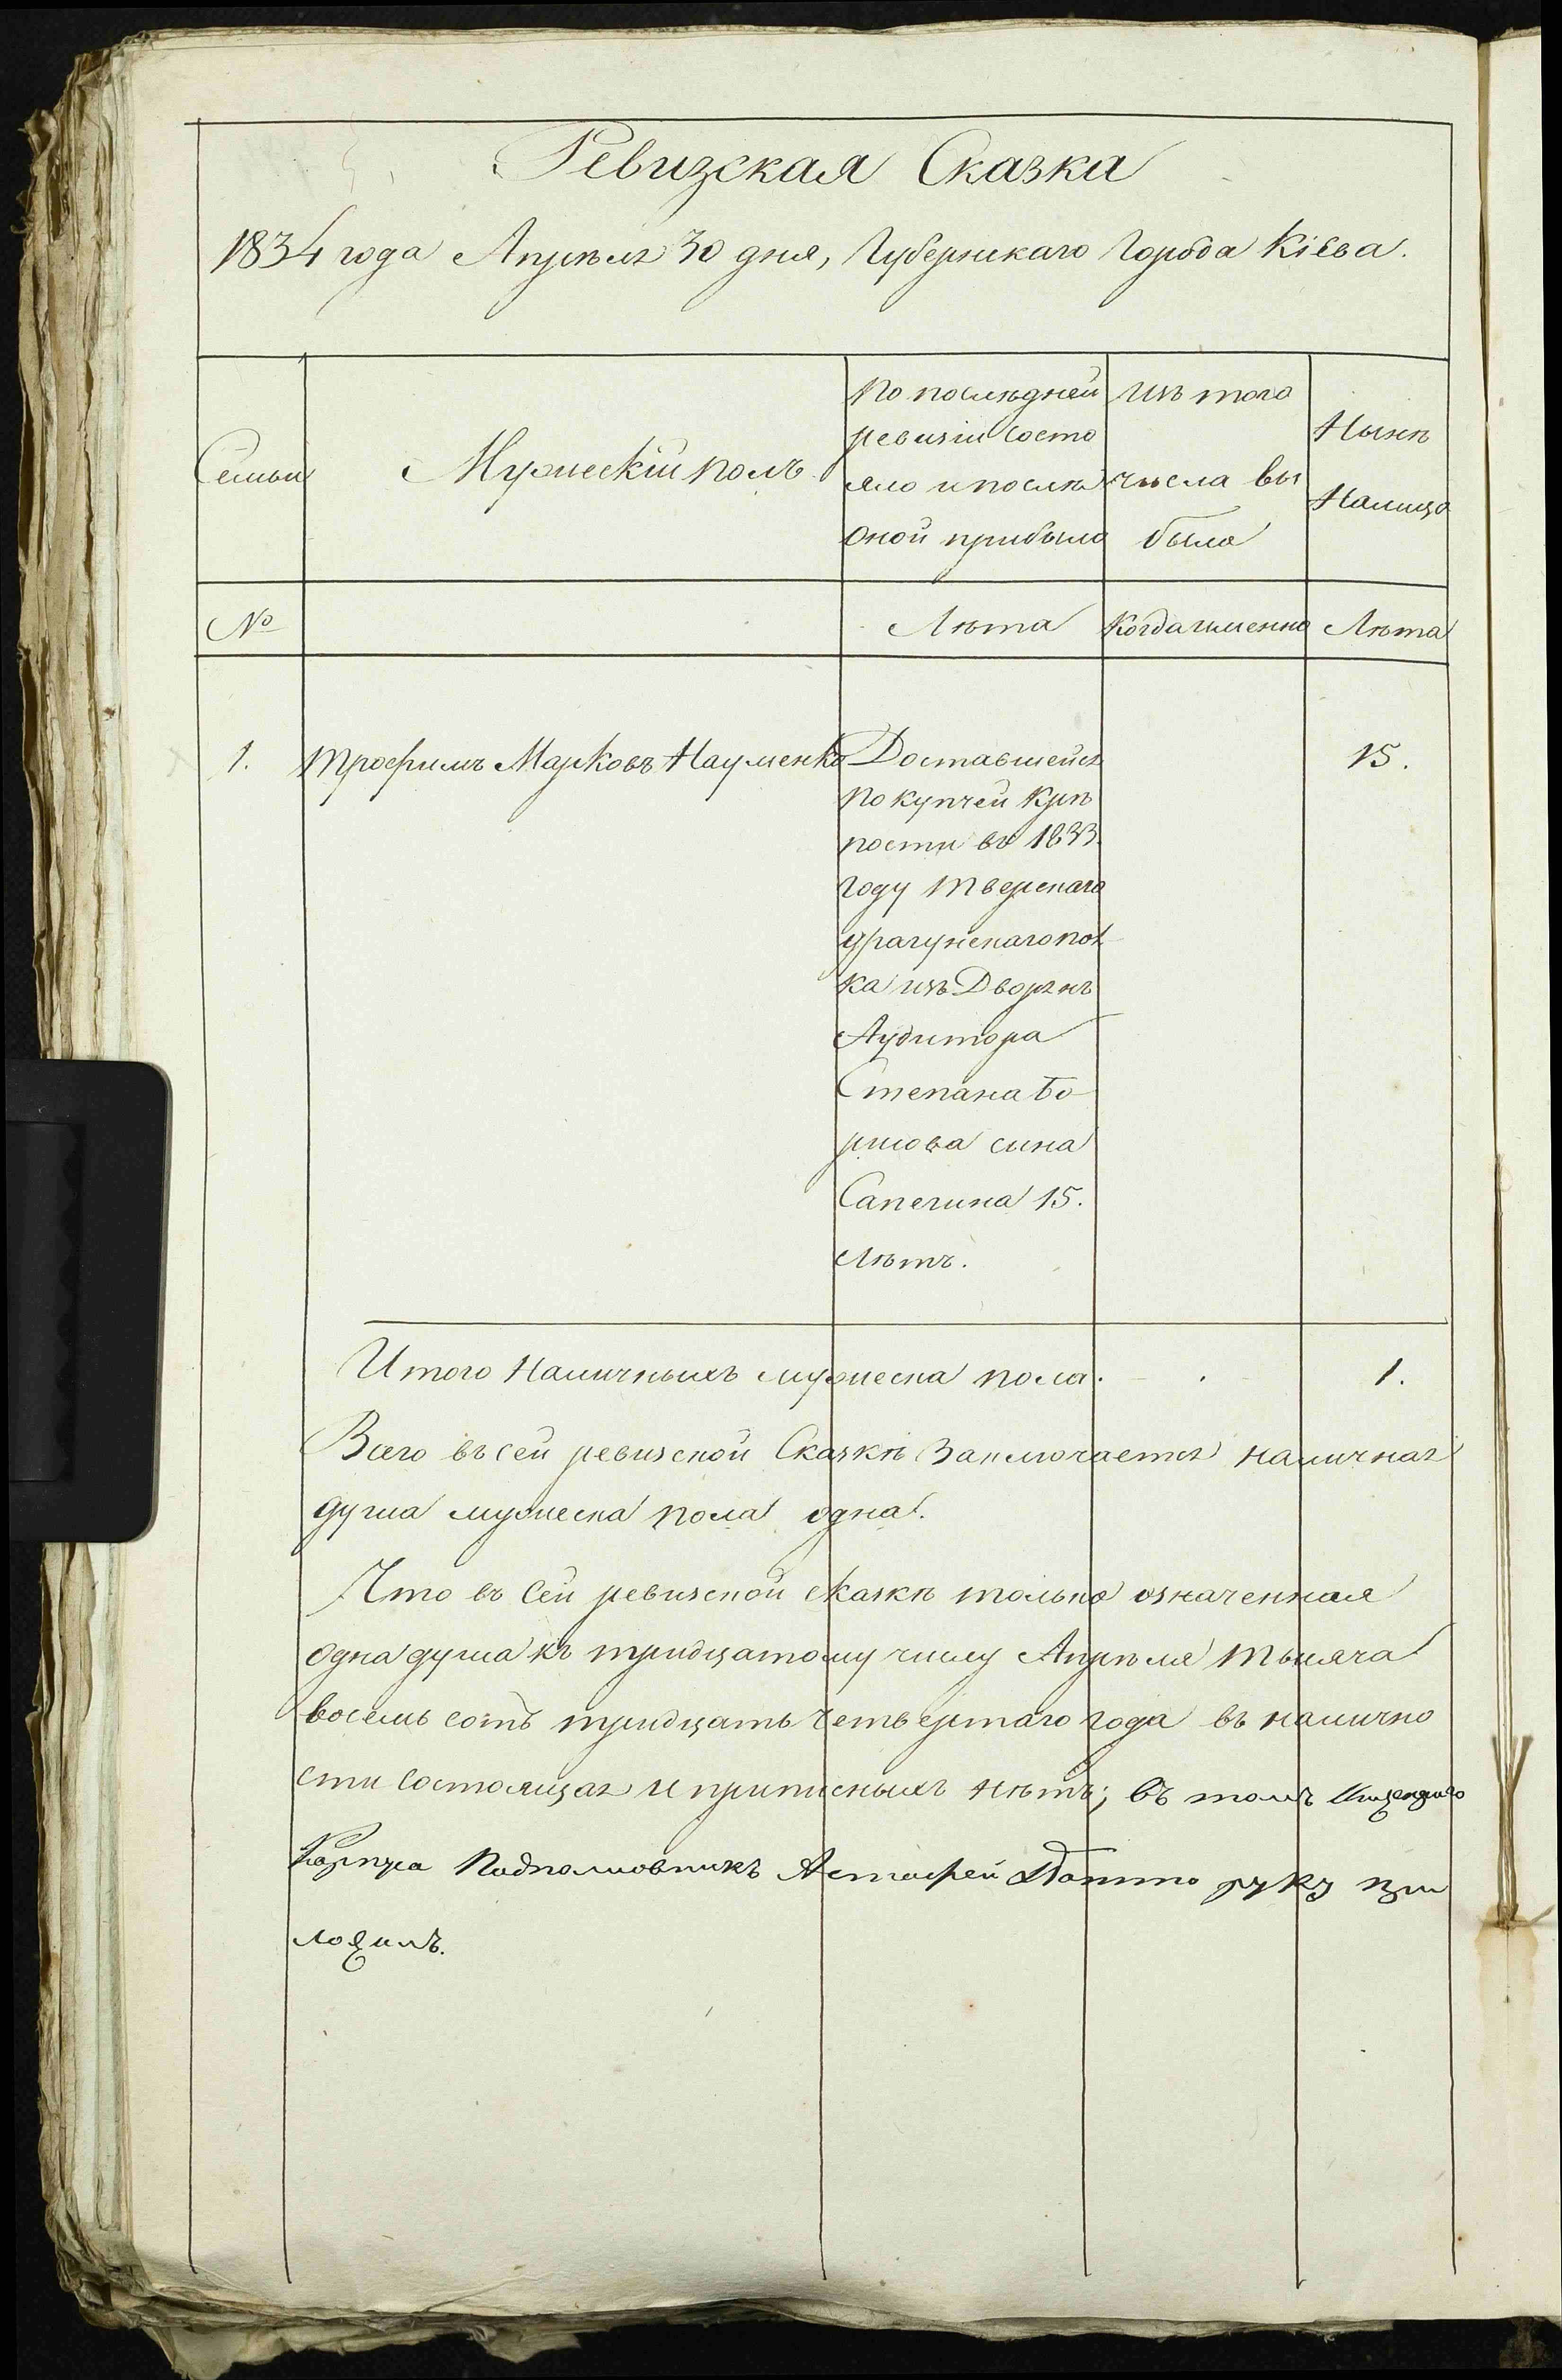 Ревизская Сказка
1834 года Апрѣля 30 дня, Губернскаго Города Кіева.
Семьи
Мужескій полъ
По послѣдней
ревизіи состо
яло и послѣ
оной прибыло
Изъ того
числа вы
было
Нынѣ
Налицо
№
Лѣта
Когда именно
Лѣта
1.
Трофимъ Марковъ Науменко
Доставшейся
по купчей крѣ
пости въ 1833.
году Тверскаго
драгунскаго пол
ка изъ Дворянъ
Аудитора
Степана Бо
рисова сына
Сапегина 15.
лѣтъ.
15.
Итого Наличныхъ мужеска пола. . 1.
Всего въ сей ревизской Сказкѣ Заключается наличная
душа мужеска пола одна.
Что въ Сей ревизской сказкѣ только означенная
одна душа къ тридцатому числу Апрѣля тысяча
восемь сотъ тридцать четвертаго года въ налично
сти состоящая и приписныхъ нѣтъ; въ томъ
Корпуса Подполковникъ руку при
ложилъ.